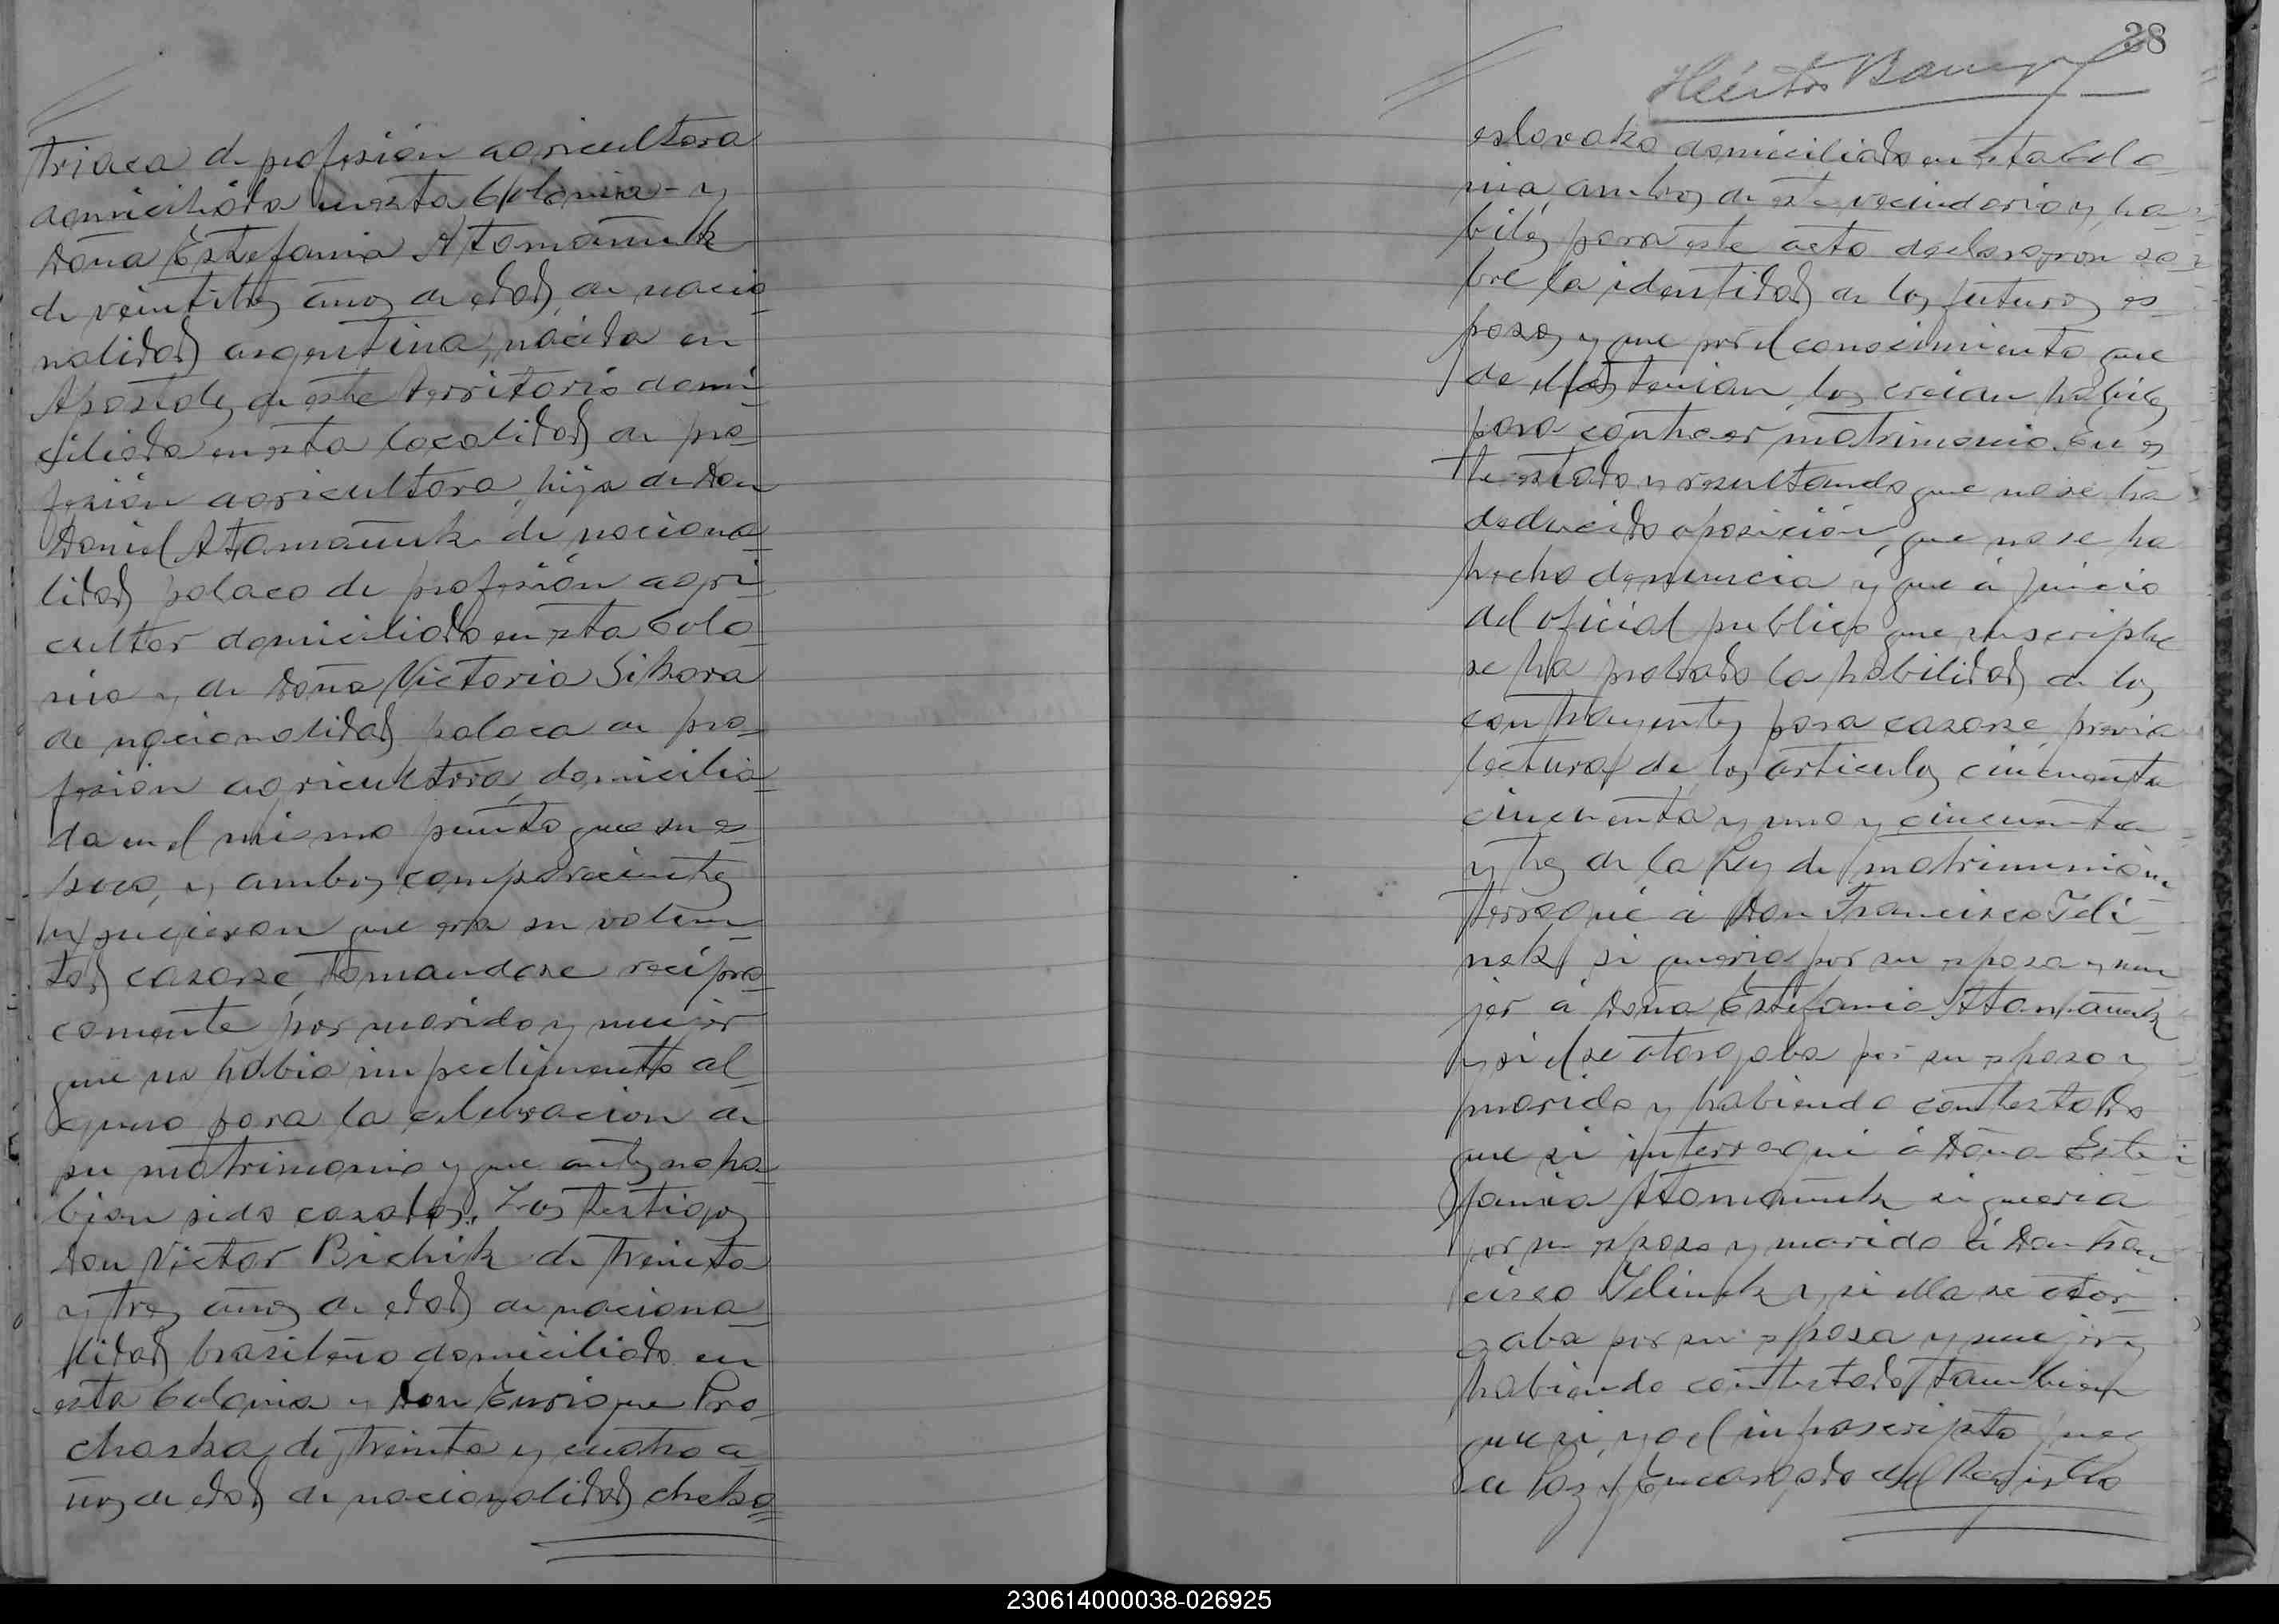 triaca de profesión agricultora
domiciliada en esta Colonia - y
Doña Estefania Atomañuk
de veintitres años de edad, de nacio-
nalidad argentina, nacida en
Apostoles de este territorio domi-
ciliada en esta localidad de pro-
fesión agricultora, hija de Don
Daniel Atamañuk de naciona-
lidad polaco de profesión agri-
cultor domiciliado en esta Colo-
nia y de Doña Victoria Sikora
de nacionalidad polaca de pro-
fesión agricultora, domicilia-
da en el mismo punto que su es-
poso, y ambos comparecientes
expusieron que era su volun-
tad casarse, tomandose recipro-
camente por marido y mujer
que no habia impedimento al-
guno para la celebracion de
su matrimonio y que antes no ha-
bian sido casados. Los testigos
Don Victor Bichik de treinta
y tres años de edad de naciona-
lidad brasileño domiciliado en
esta Colonia y Don Enrique Pro-
chaska, de treinta y cuatro a-
ños de edad de nacionalidad cheko-
38
Héctor
eslovako domiciliado en esta Colo-
nia, ambos de este vecindario y ha-
biles para este acto declararon so-
bre la identidad de los futuros es-
posos y que por el conocimiento que
de ellos tenian, los creian habiles
para contraer matrimonio. En es-
te estado y resultando que no se ha
deducido oposición, que no se ha
hecho denuncia y que á juicio
del oficial publico que suscripbe
se ha probado la habilidad de los
contrayentes para casarse, previa
lectura de los articulos cincuenta
cincuenta y uno y cincuenta
y tres de la Ley de matrimonio in-
terrogué á Don Francisco Jeli-
nek si queria por su esposa y mu-
jer á Doña Estefania Atomañuk
y si el se otorgaba por su esposo y
marido y habiendo contestado
que si interrogué á Doña Este-
fania Atomañuk si queria
por su esposo y marido á Don Fran
cisco Jelinek y si ella se otor-
gaba por su esposa y mujer y
habiendo contestado tambien
que si, yo el infrascripto Juez
de Paz y Encargado del Registro
230614000038-026925